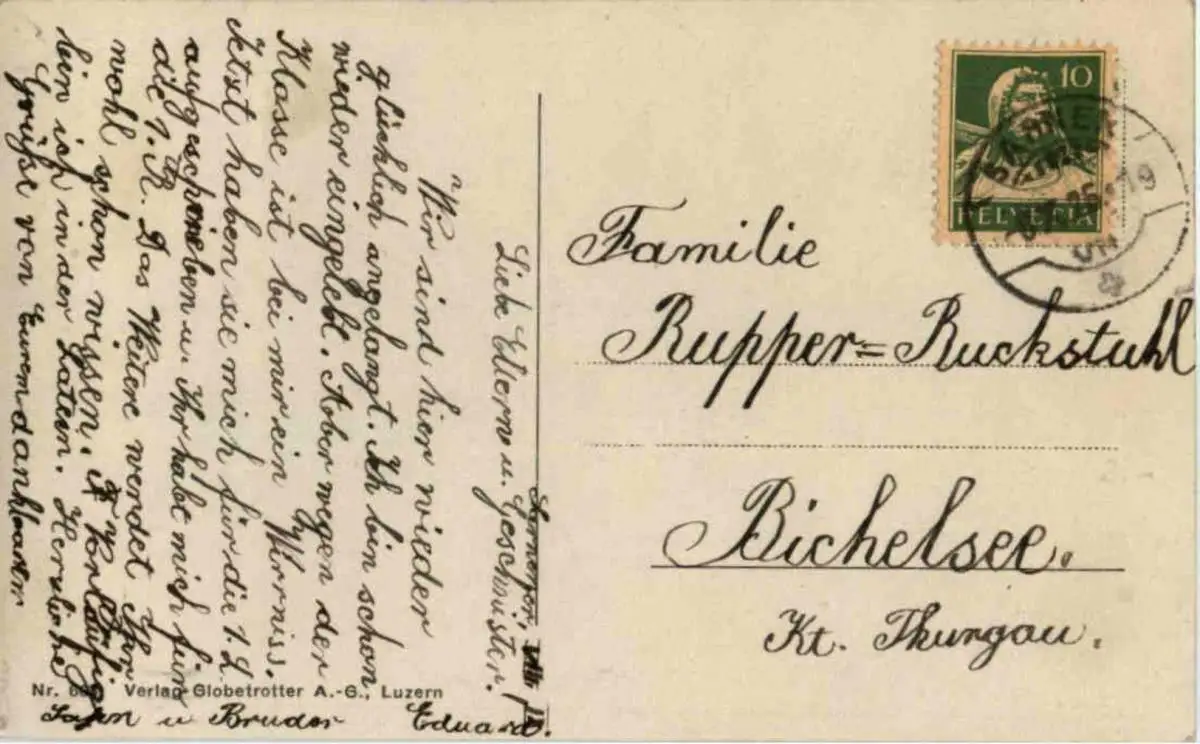 Liebe Eltern u. Geschwister.
Wir sind hier wieder
glücklich angelangt. Ich bin schon
wieder eingelebt. Aber wegen der
Klasse ist bei mir ein Wirrniss.
Jetzt haben sie mich für die 1. L
aufgeschrieben u. Ihr habt mich für
die 1. R. Das Weitere werdet Ihr
wohl schon wissen. Vorläufig
bin ich in der Latein. Herzliche
Grüsse von Eurem dankbaren
Sohn u Bruder Eduard.
Familie
Rupper=Ruckstuhl
Bichelsee.
Kt. Thurgau.
10
HELVETIA
Nr. Verlag Globetrotter A.-G., Luzern